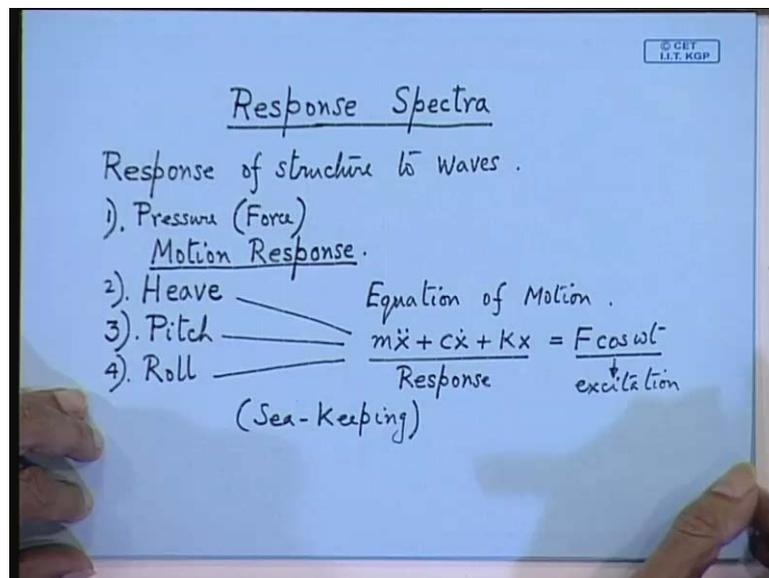 © CET
I.I.T. KGP
Response Spectra
Response of structure to waves.
1). Pressure (Force)
Motion Response.
2). Heave
Equation of Motion.
3). Pitch
mẍ + cẋ + Kx = F cos ωt
4). Roll
Response
excitation
(Sea-Keeping)